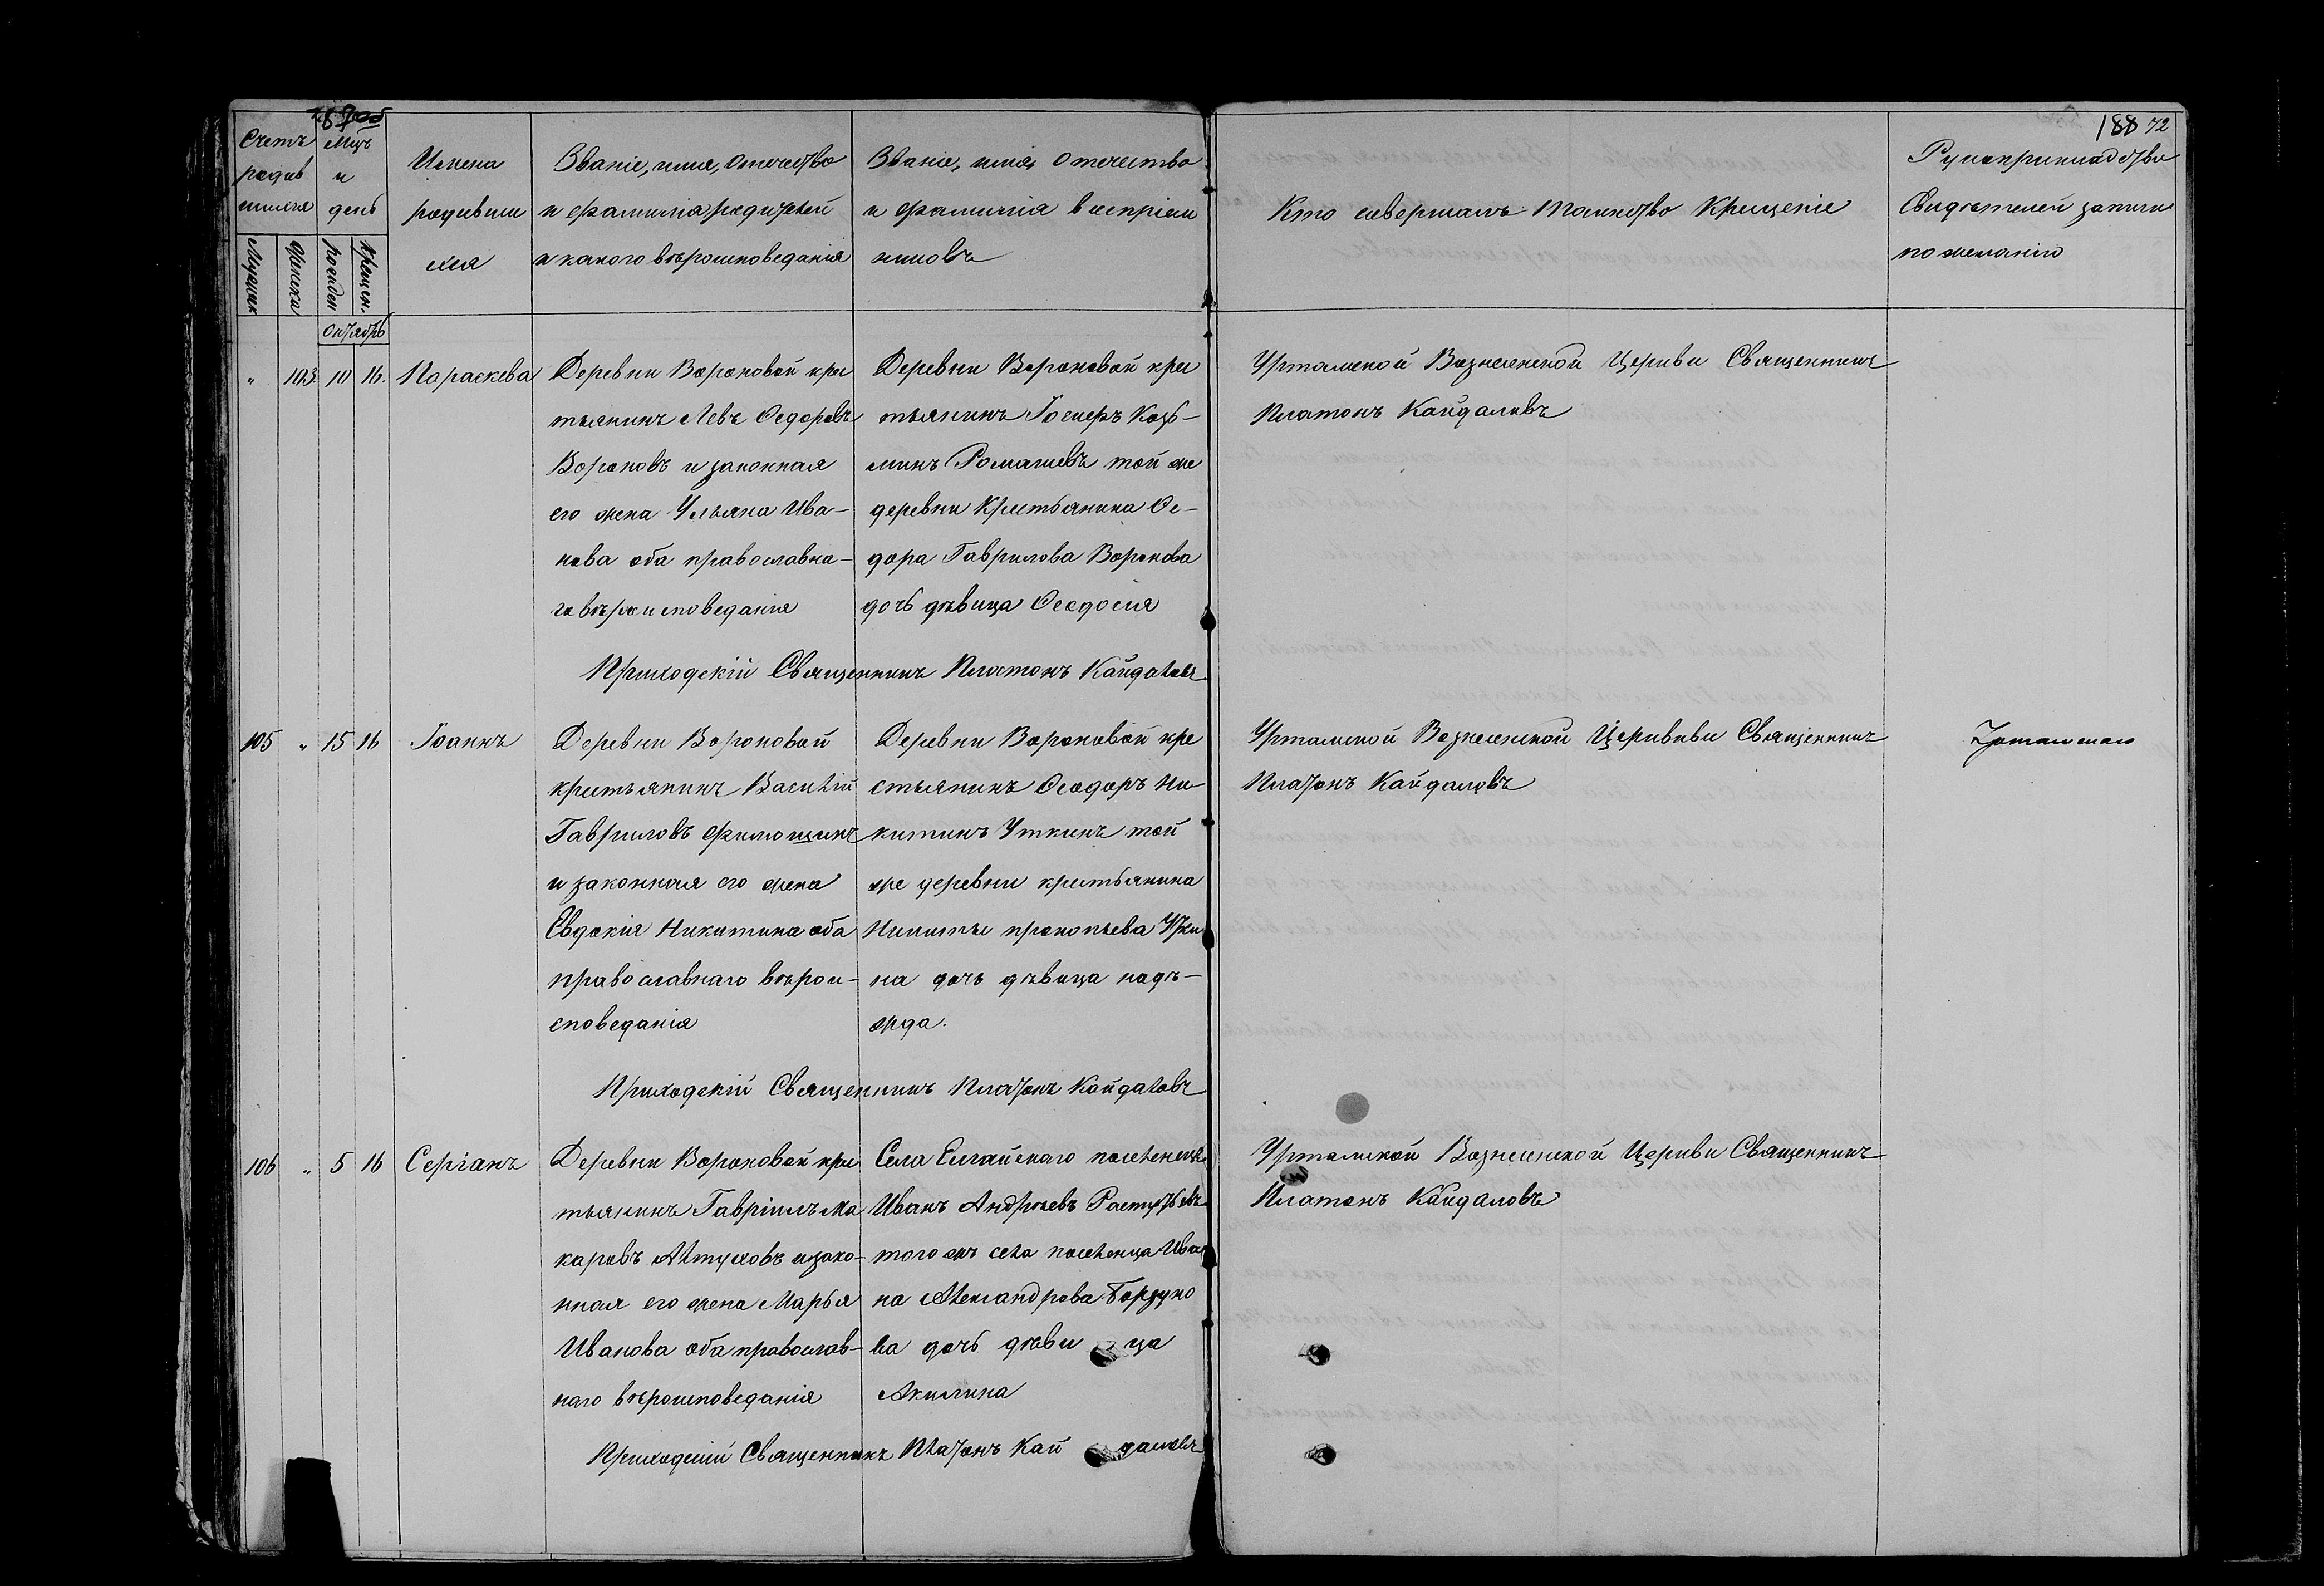 188 72
Счетъ родив шихся
Мцъ и день
Имена родивши хся
Званіе, имя, отечество и фамилія родителей и какого вѣроисповеданія
Званіе, имя, отечество и фамилія воспріем никовъ
Кто совершалъ таинство крещеніе
Рукоприкладство Свидѣтелей записи по желанію
Мужеск
Женска
рожден
крещен.
Октябрь
" 103 10 16. Параскева
Деревни Вороновой крес
тьянинъ Левъ Федоровъ
Вороновъ и законная
его жена Ульяна Ива-
нова оба православна-
го вѣроисповеданія
Деревни Вороновой крес
тьянинъ Іосифъ Козь-
минъ Ромашевъ той же
деревни Крестьянина Ѳе-
дора Гаврилова Воронова
дочь дѣвица Ѳеодосія
Уртамской Вознесенской Церкви Священникъ
Платонъ Кайдаловъ
Приходскій Священникъ Платонъ Кайдаловъ
105 " 15 16 Іоаннъ
Деревни Вороновой
крестьянинъ Василій
Гавриловъ Филющинъ
и законная его жена
Евдокія Никитина оба
православнаго вѣрои-
споведанія
Деревни Вороновой кре
стьянинъ Ѳеодоръ Ни-
китинъ Уткинъ той
же деревни крестьянина
Никиты прокопьева Утки
на дочь дѣвица надѣ-
жда.
Уртамской Вознесенской Церкви Священникъ
Платонъ Кайдаловъ
Приходскій Священникъ Платонъ Кайдаловъ
106 " 5 16 Сергіанъ
Деревни Вороновой крес
тьянинъ Гавріилъ Ма
каровъ Алтуховъ и зако-
нная его жена Марья
Иванова оба православ-
наго вѣроисповеданія
Села Елгайскаго поселенецъ
Иванъ Андреевъ
того жъ села поселенца Ива
на Александрова Борзуно
ва дочь дѣвица
Акилина
Уртамской Вознесенской Церкви Священникъ
Платонъ Кайдаловъ
Приходскій Священникъ Платонъ Кайдаловъ